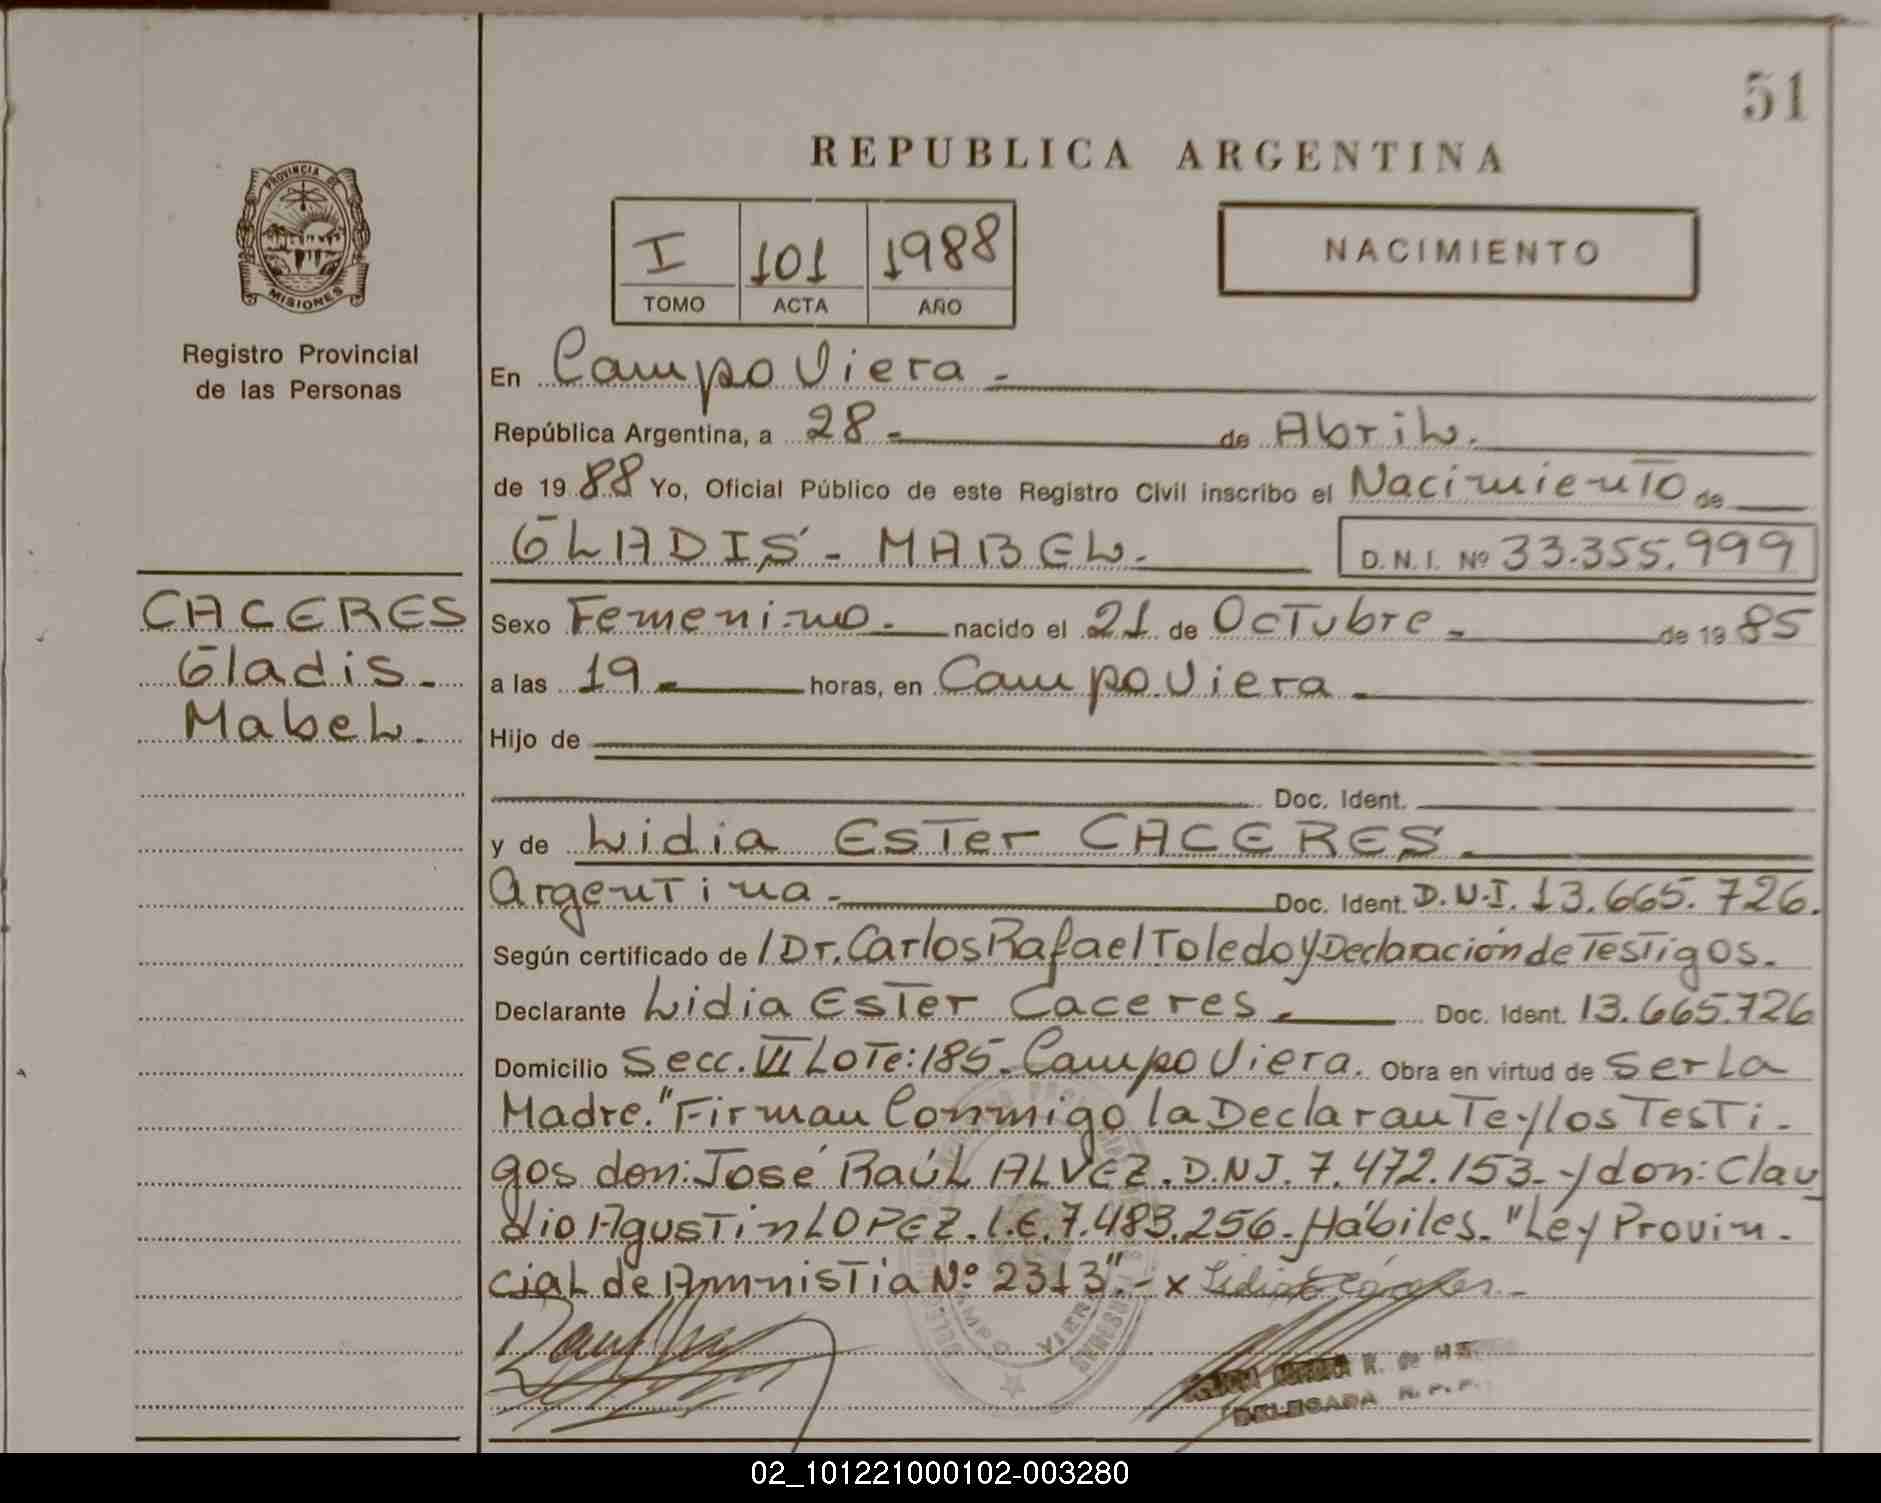 51
REPUBLICA ARGENTINA
PROVINCIA DE
MISIONES
Registro Provincial
de las Personas
I 101 1988
TOMO ACTA AÑO
NACIMIENTO
En Campo Viera -
República Argentina, a 28 - de Abril.
de 19 88 Yo, Oficial Público de este Registro Civil inscribo el Nacimiento de
GLADIS - MABEL. - D.N.I. Nº 33.355.999
CACERES
Gladis -
Mabel.
Sexo Femenino. - nacido el 21 de Octubre - de 19 85
a las 19 - horas, en Campo Viera -
Hijo de
Doc. Ident.
y de Lidia Ester CACERES. -
Argentina - Doc. Ident. D.N.I. 13.665.726.
Según certificado de /Dr. Carlos Rafael Toledo y Declaración de Testigos.
Declarante Lidia Ester Caceres. - Doc. Ident. 13.665.726
Domicilio Secc. VI Lote: 185 - Campo Viera. Obra en virtud de ser la
Madre." Firman Conmigo la Declarante y los Testi-
gos don: José Raúl ALVEZ. D.N.I. 7.472.153 - y don: Clau
dio Agustin LOPEZ. L.E. 7.483.256 - Hábiles. "Ley Provin-
cial de Amnistia Nº 2313". - x
CAMPO VIERA
DELEGADA R.P.P.
02_101221000102-003280